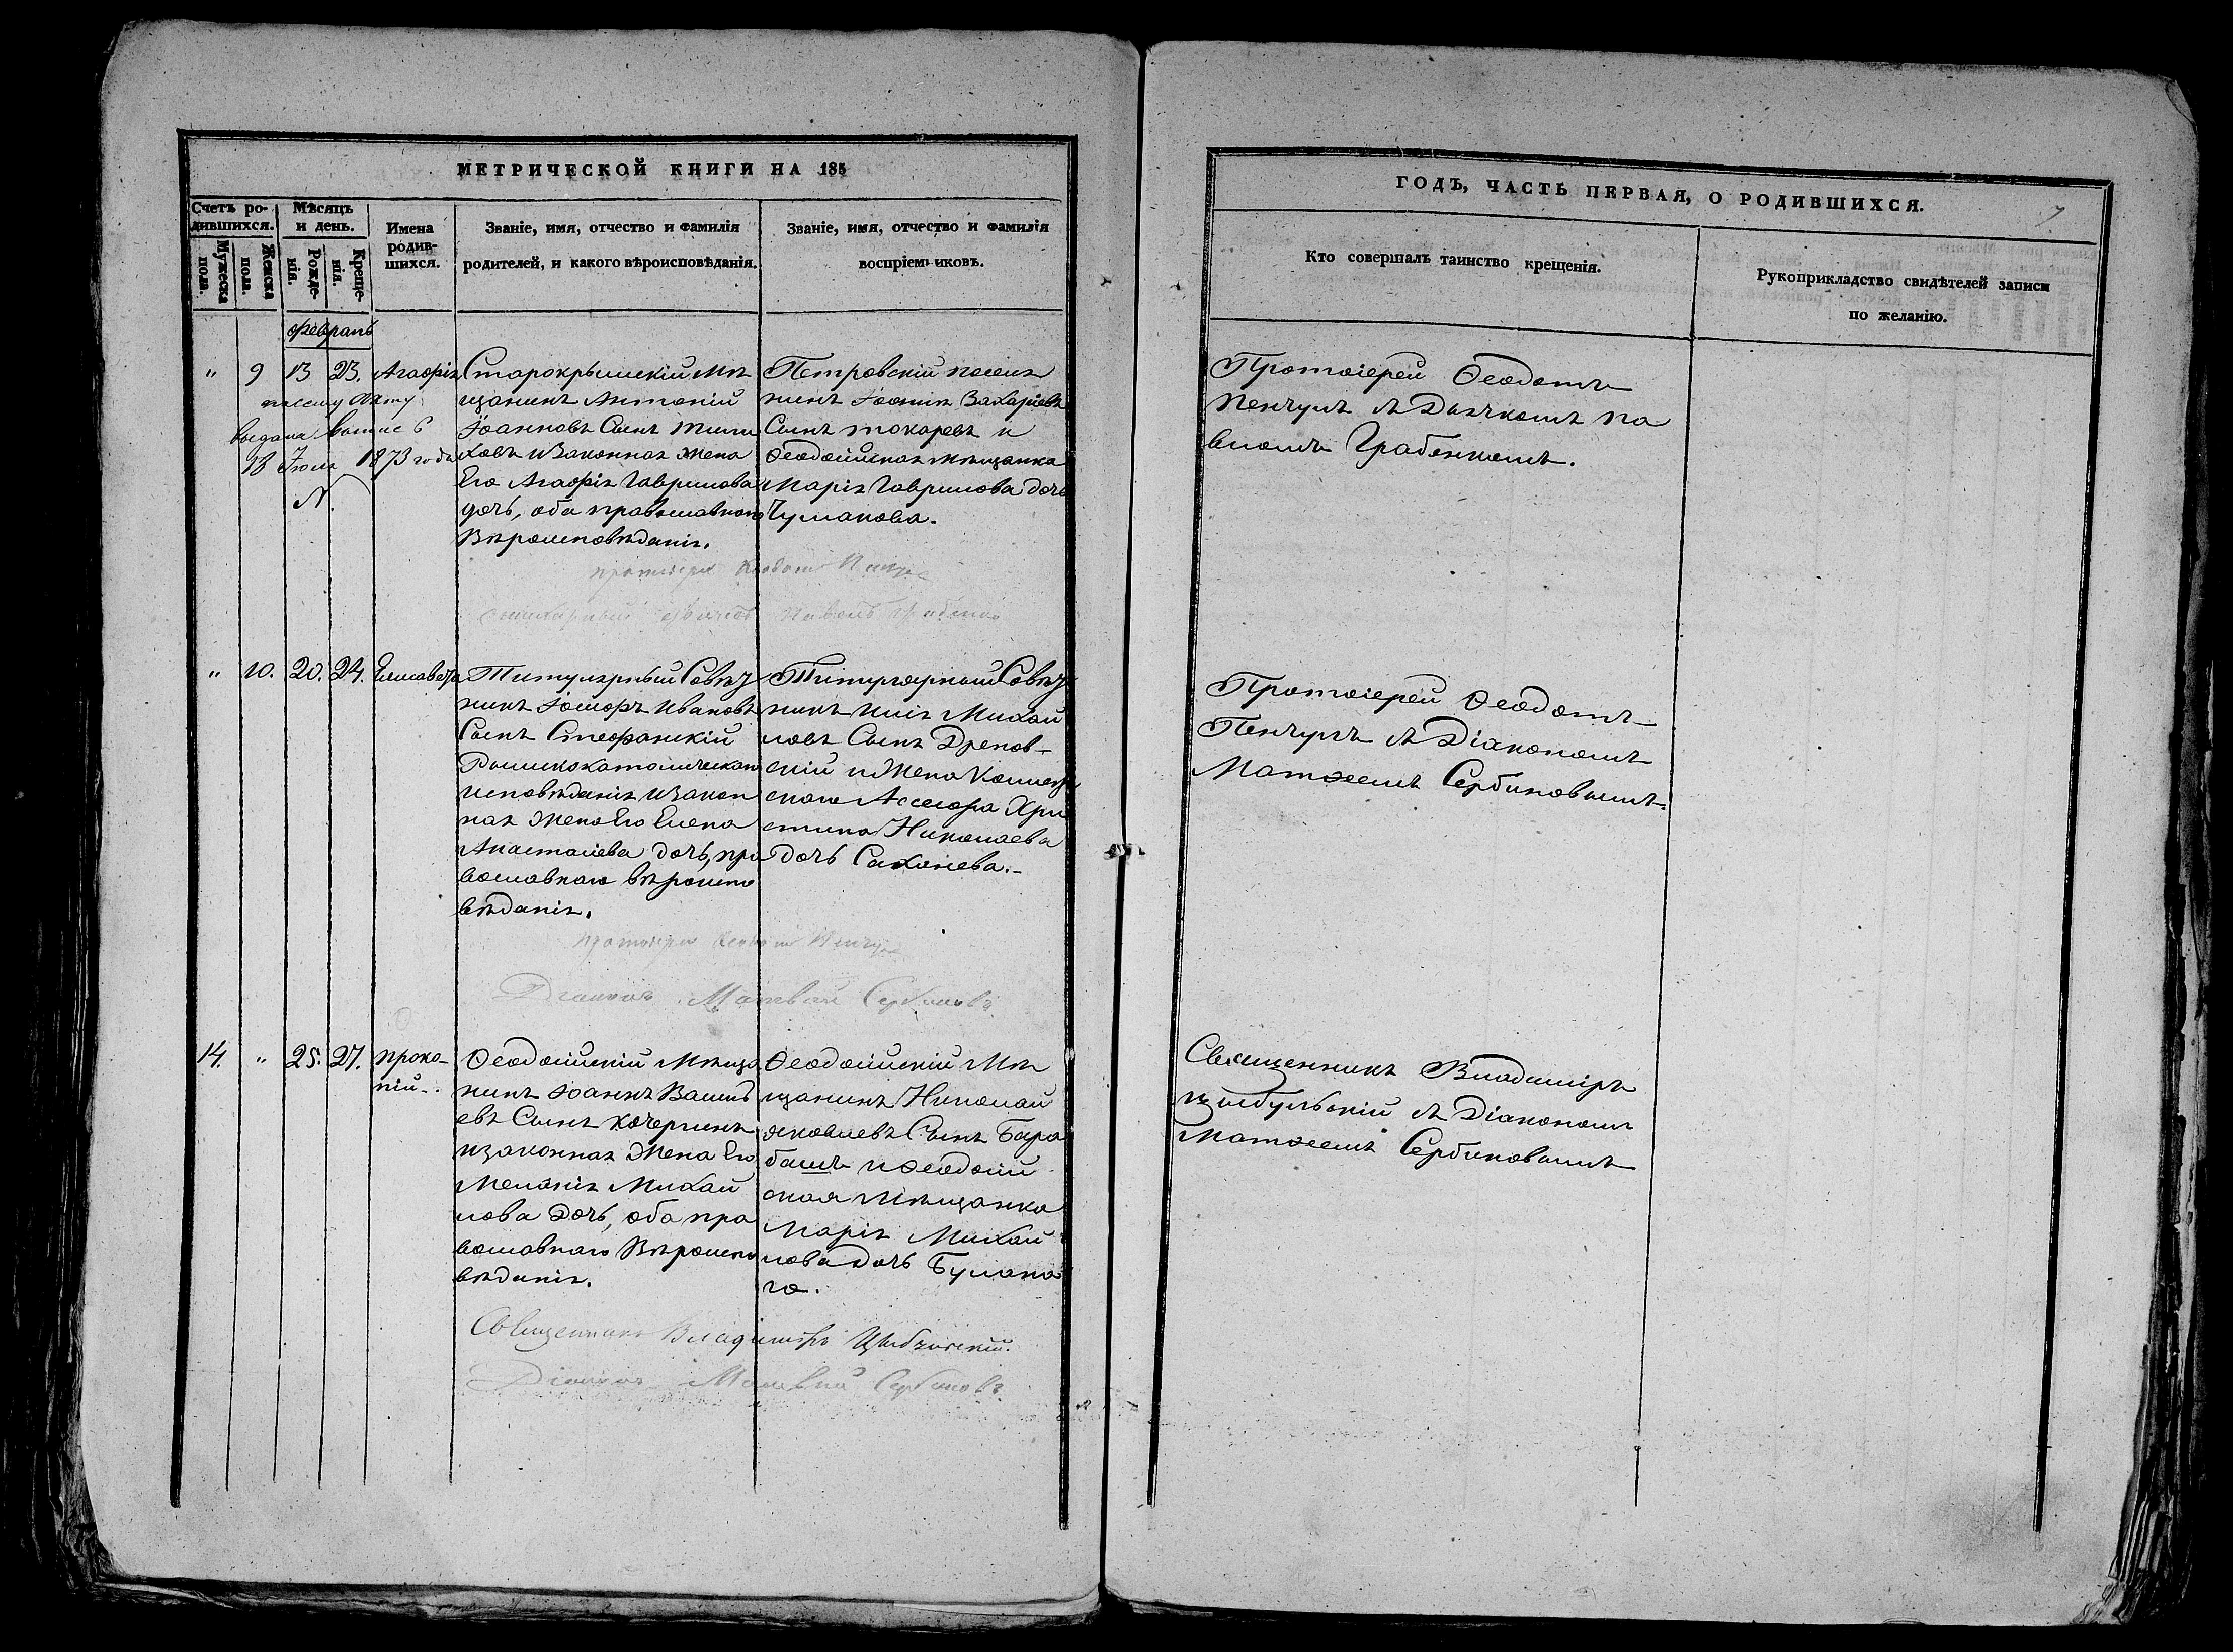 МЕТРИЧЕСКОЙ КНИГИ НА 185
Счетъ ро-
дившихся.
Мужеска
пола.
Женска
пола.
Мѣсяцъ
и день.
Рожде-
нія.
Креще-
нія.
Имена
родив-
шихся.
Званіе, имя, отчество и фамилія
родителей, и какого вѣроисповѣданія.
Званіе, имя, отчество и фамилія
воспріемниковъ.
Февраль
" 9 13 23. Агафія
по сему акту
выдана
18 Іюля 1873 года
N.
Старокрымскій мѣ
щанинъ Антоній
Іоанновъ Сынъ
ховъ и Законная жена
Его Агафія Гаврилова
дочь, оба православнаго
Вѣроисповѣданія.
Петровскій поселя
нинъ Іоаннъ Захаріевъ
Сынъ токаревъ и
Ѳеодосійская мѣщанка
Марія Гаврилова дочь
Чумакова.
протоіерей Ѳеодотъ Пенчулъ
Павелъ Грабенко
" 10. 20. 24. Елисавета
Титулярный Совѣт
никъ Іосифъ Ивановъ
Сынъ Стефанскій
Римскокатолическаго
исповѣданія и Закон
ная жена Его Елена
Анастасіева дочь, пра
вославнаго вѣроиспо
вѣданія.
Титулярный Совѣт
никъ Илія Михай
ловъ Сынъ Дренов-
скій и Жена Коллеж
скаго Ассесора Хри
стина Николаева
дочь Саханева.-
протоіерей Ѳеодотъ Пенчулъ
Діаконъ Матвѣй Сербиновъ
14. " 25. 27. Проко-
пій-.
Ѳеодосійскій Мѣща
нинъ Іоаннъ Василь
евъ Сынъ Кочергинъ
и законная Жена Его
Меланія Михай
лова Дочь, оба пра
вославнаго Вѣроиспо
вѣданія.
Ѳеодосійскій Мѣ
щанинъ Николай
Яковлевъ Сынъ Бара
башъ и Ѳеодосій
ская Мѣщанка
Марія Михай
лова Дочь Булана
го.
Священникъ Владиміръ Цыбульскій.
Діаконъ Матвѣй Сербиновъ
ГОДЪ, ЧАСТЬ ПЕРВАЯ, О РОДИВШИХСЯ.
7
Кто совершалъ таинство крещенія.
Рукоприкладство свидѣтелей записи
по желанію.
Протоіерей Ѳеодотъ
Пенчулъ съ Дьячкомъ Па
вломъ Грабенкомъ.
Протоіерей Ѳеодотъ
Пенчулъ съ Діакономъ
Матѳеемъ Сербиновымъ.
Священникъ Владиміръ
Цыбульскій съ Діакономъ
Матѳеемъ Сербиновымъ